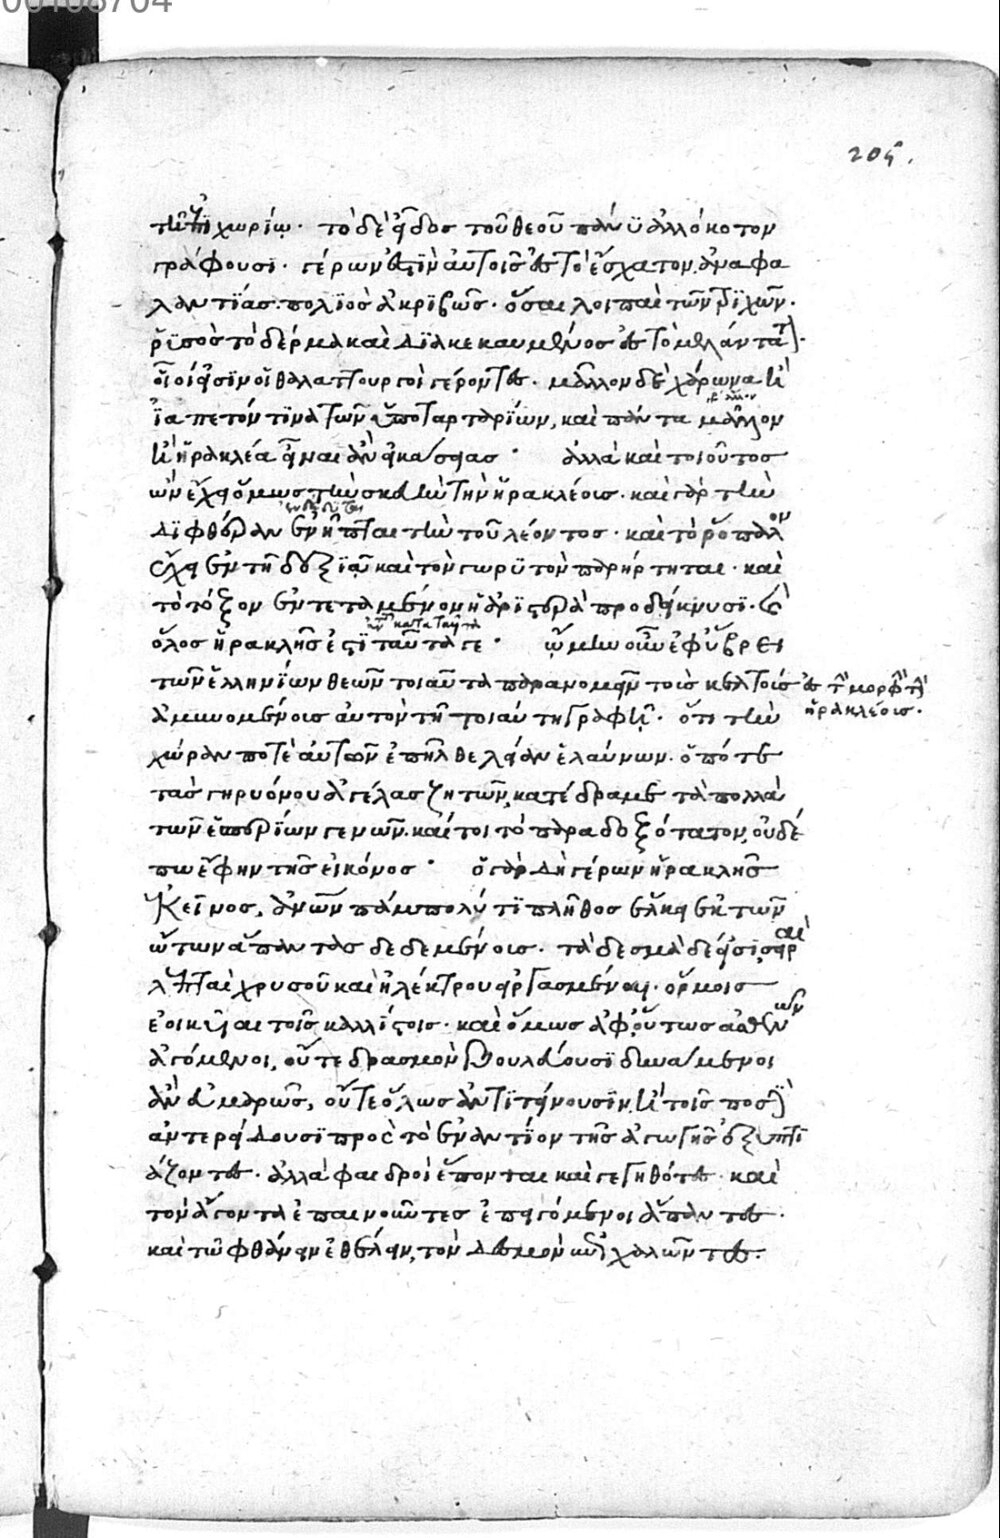 205.
τῆ ἐπιχωρίω. τὸ δὲ εἶδος τοῦ θεοῦ πάνυ ἀλλόκοτον
γράφουσι. γέρων ἐστὶν αὐτοῖς ἐς τὸ ἔσχατον. ἀναφα
λαντίας. πολιὸς ἀκριβῶς. ὅσαι λοιπαὶ τῶν τριχῶν.
ῥυσὸς τὸ δέρμα καὶ διακεκαυμένος ἐς τὸ μελάντατον.
οἷοί εἰσιν οἱ θαλαττουργοὶ γέροντες. μᾶλλον δὲ χάρωνα ἢ
ἰαπετόν τινα τῶν ὑποταρταρίων, καὶ πάντα μᾶλλον
ἢ ἡρακλέα εἶναι ἂν εἰκάσειας. ἀλλὰ καὶ τοιοῦτος
ὢν ἔχει ὅμως τὴν σκευὴν τὴν ἡρακλέους. καὶ γὰρ τὴν
διφθέραν ἐνῆπται τὴν τοῦ λέοντος. καὶ τὸ ῥόπαλον
ἔχει ἐν τῆ δεξιᾶ καὶ τὸν γωρυτὸν παρήρτηται. καὶ
τὸ τόξον ἐντεταμένον ἡ ἀριστερὰ προδείκνυσι. καὶ
ὅλος ἡρακλῆς ἐστὶ ταῦτά γε. ᾤμην οὖν ἐφ' ὕβρει
τῶν ἑλληνίων θεῶν τοιαῦτα παρανομεῖν τοὺς κελτοὺς ἐς τὴν μορφὴν τὴν
ἡρακλέους.
ἀμυνομένους αὐτὸν τῆ τοιαύτη γραφῆ. ὅτι τὴν
χώραν ποτὲ αὐτῶν ἐπῆλθε λείαν ἐλαύνων. ὁπότε
τὰς γηρυόνου ἀγέλας ζητῶν, κατέδραμε τὰ πολλὰ
τῶν ἑσπερίων γενῶν. καίτοι τὸ παραδοξότατον, οὐδέ
πω ἔφην τῆς εἰκόνος. ὁ γὰρ δὴ γέρων ἡρακλῆς
ἐκεῖνος, ἀνθρώπων πάμπολύ τι πλῆθος ἕλκει ἐκ τῶν
ὤτων ἅπαντας δεδεμένους. τὰ δεσμὰ δέ εἰσι σειραὶ
λεπταὶ χρυσοῦ καὶ ἠλέκτρου εἰργασμέναι. ὅρμοις
ἐοικυῖαι τοῖς καλλίστοις. καὶ ὅμως ἀφ' οὕτως ἀσθενῶν
ἀγόμενοι, οὔτε δρασμὸν βουλεύουσι δυνάμενοι
ἂν εὐμαρῶς, οὔτε ὅλως ἀντιτείνουσιν, ἢ τοῖς ποσὶν
ἀντερείδουσι πρὸς τὸ ἐναντίον τῆς ἀγωγῆς ἐξυπτι
άζοντες. ἀλλὰ φαιδροὶ ἕπονται καὶ γεγηθότες. καὶ
τὸν ἄγοντα ἐπαινοῦντες ἐπειγόμενοι ἅπαντες.
καὶ τῶ φθάνειν ἐθέλειν, τὸν δεσμὸν ἐπιχαλῶντες.